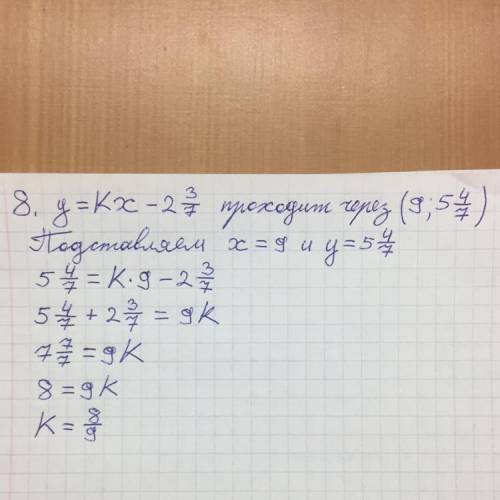 8. y = Kx − 2 3/7 проходит через (9; 5 4/7)
Подставляем x = 9 и y = 5 4/7
5 4/7 = K·9 − 2 3/7
5 4/7 + 2 3/7 = 9K
7 7/7 = 9K
8 = 9K
K = 8/9